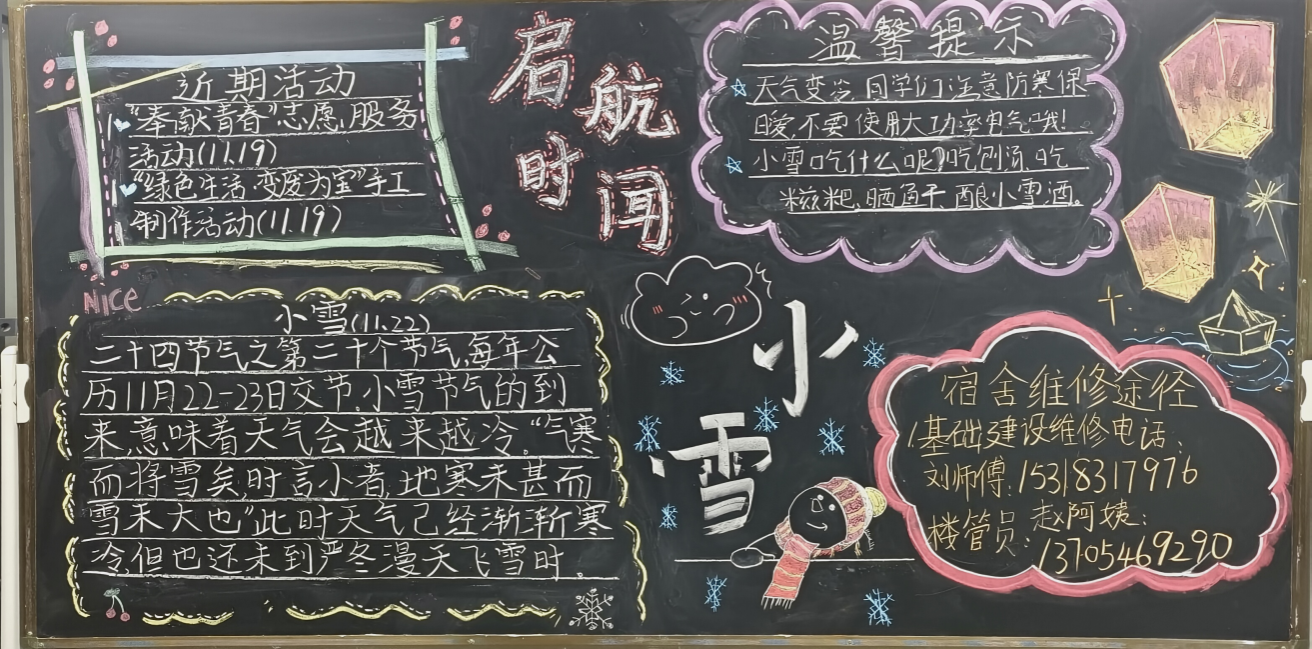 近期活动
"奉献青春"志愿服务
活动(11.19)
"绿色生活,变废为宝"手工
制作活动(11.19)
启航
时闻
温馨提示
天气变冷,同学们注意防寒保
暖,不要使用大功率电气哦!
小雪吃什么呢?吃刨汤,吃
糍粑,晒鱼干,酿小雪酒。
Nice
小雪(11.22)
二十四节气之第二十个节气,每年公
历11月22-23日交节.小雪节气的到
来,意味着天气会越来越冷。"气寒
而将雪矣,时言小者,地寒未甚而
雪未大也"此时天气已经渐渐寒
冷,但也还未到严冬漫天飞雪时。
小
雪
宿舍维修途径
基础建设维修电话:
刘师傅:15318317976
楼管员:赵阿姨:
13705469290